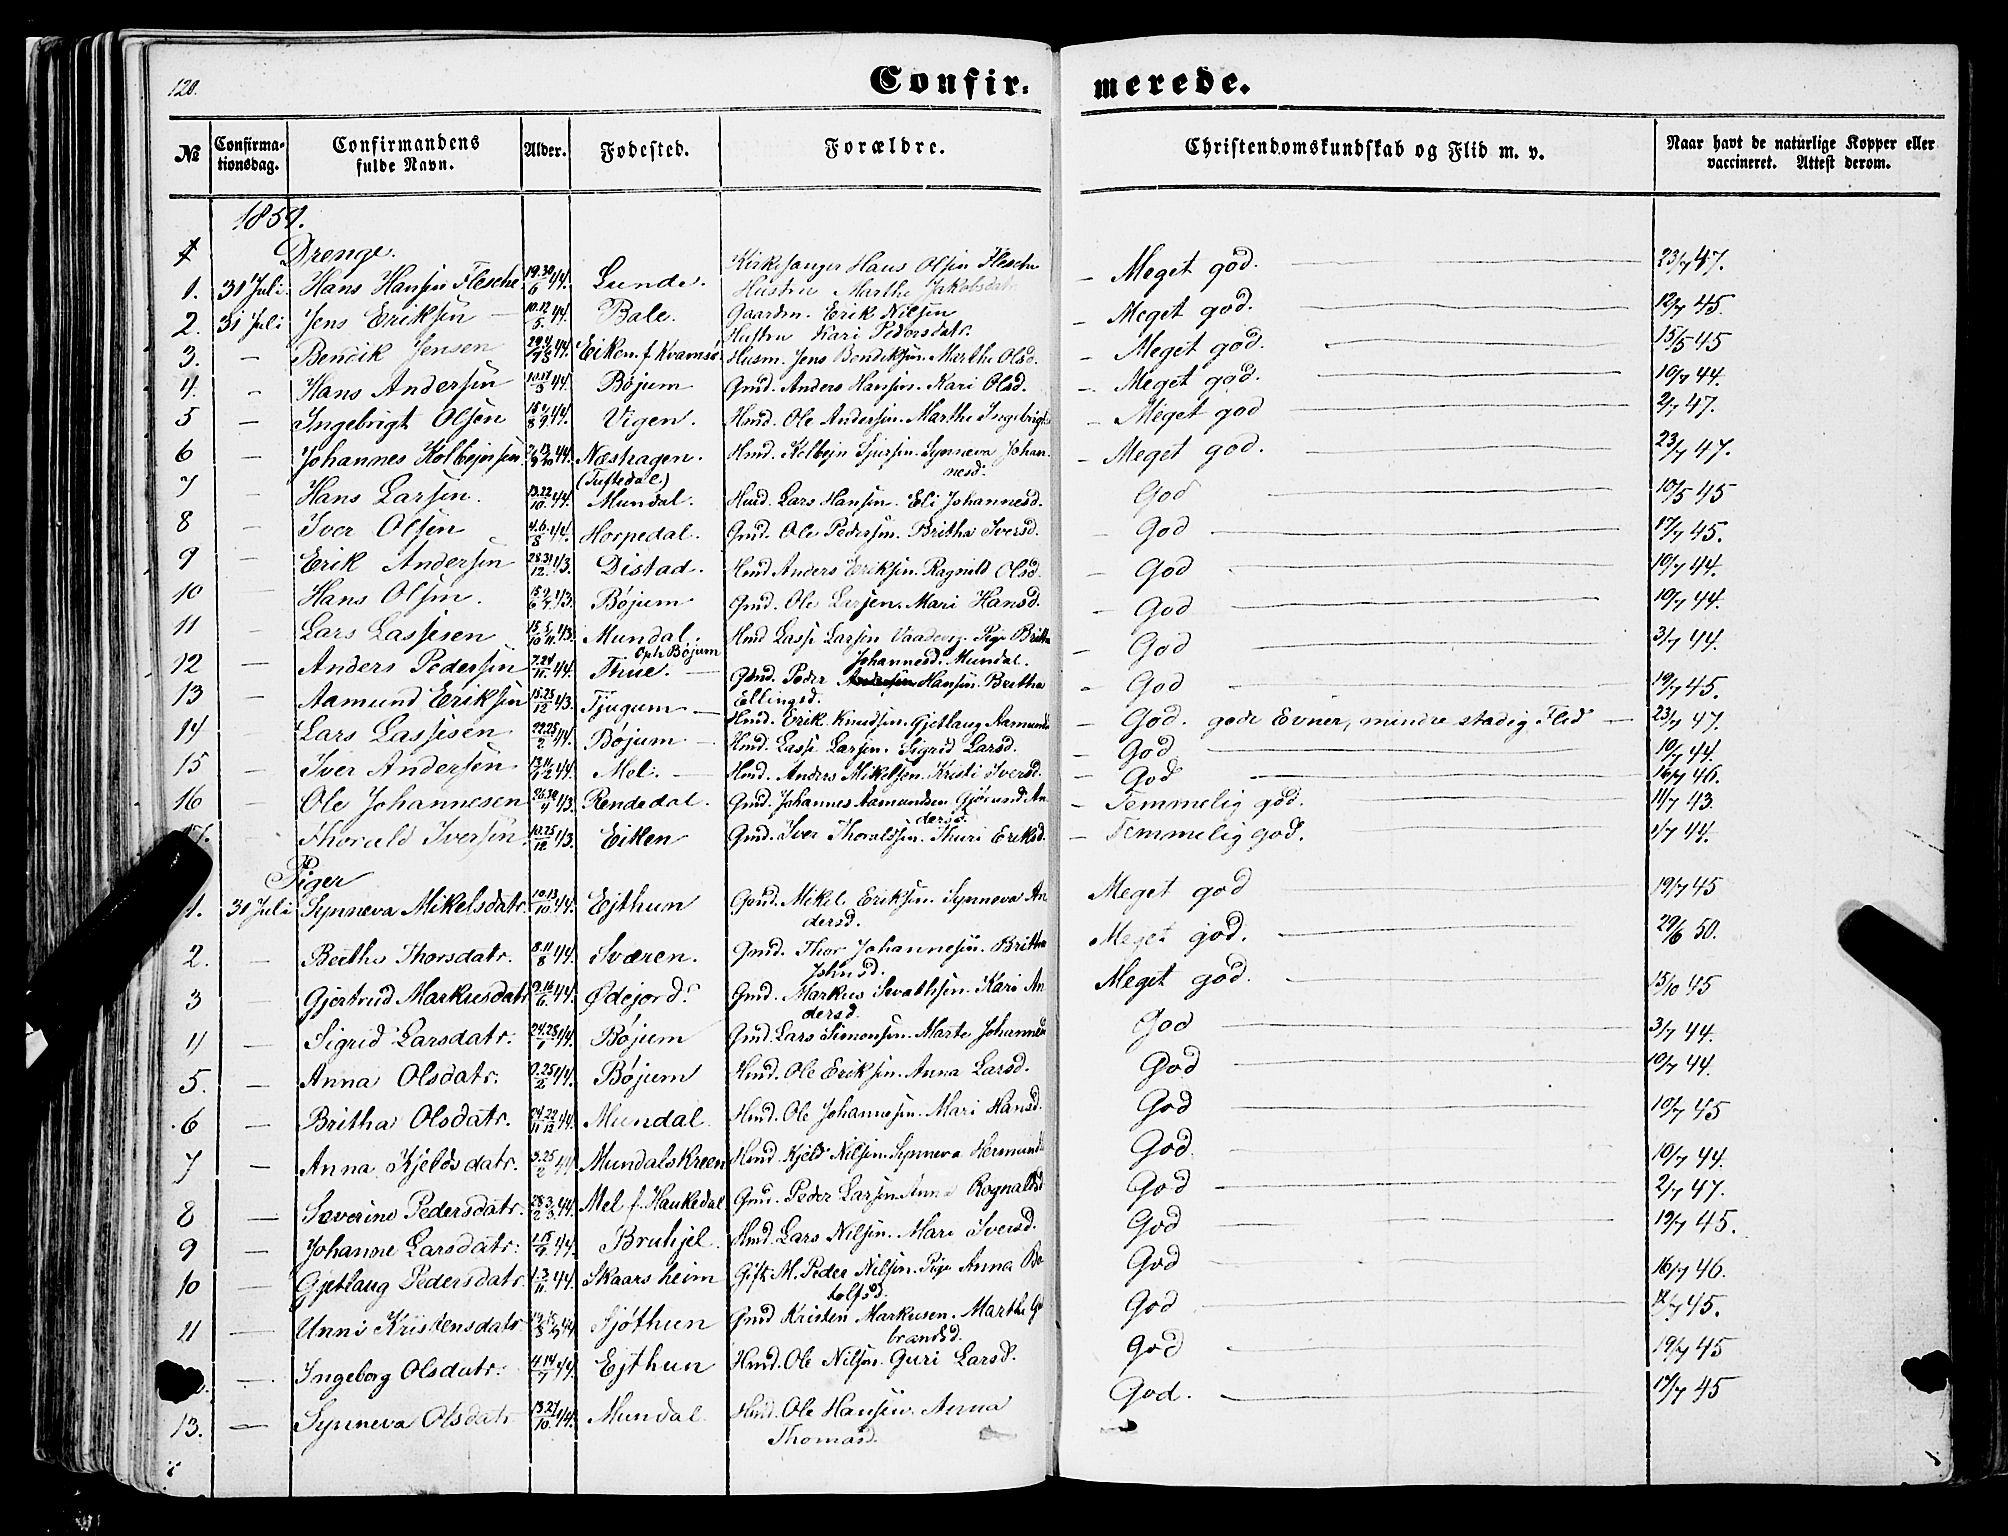 120.
Confir- merede.
№ Confirma-tionsdag. Confirmandens fulde Navn. Alder. Fødested. Forældre. Christendomskundskab og Flid m. v. Naar havt de naturlige Kopper eller vaccineret. Attest derom.
1859.
Drenge.
1. 31 Juli. Hans Hansen Flesche 19.30/6 44. Lunde. Kirkesanger Hans Olsen Flesche Hustru Marthe Jakobsdatr. – Meget god. 23/7 47.
2. 31 Juli Jens Eriksen 10.12/5 44. Bale. Gaardm. Erik Nilsen Hustru Kari Pedersdatr. – Meget god. 12/7 45.
3. – Bendik Jensen 44. Eiken f. Kvamsø. Husm. Jens Bendiksen. Marthe Olsd. – Meget god. 15/5 45
4. – Hans Andersen 44. Bøjum Gmd. Anders Hansen. Kari Olsd. – Meget god. 19/7 44.
5 – Ingebrigt Olsen 44. Vigen. Hmd. Ole Andersen. Marthe Ingebrigts – Meget god 2/7 47.
6 – Johannes Kolbejnsen 44. Næshagen. (Tuftedale.) Hmd. Kolbejn Sjursen. Synneva Johannesd. – Meget god. 23/7 47.
7 – Hans Larsen. 13.22/10 44. Mundal. Hmd. Lars Hansen. Eli Johannesd. God 10/5 45
8 – Iver Olsen 4.6/8 44. Horpedal. Gmd. Ole Pedersen. Britha Iversd. – God 17/7 45.
9 – Erik Andersen 28.31/12 43. Distad. Hmd Anders Eriksen. Ragnild Olsd. – God 19/7 44.
10 – Hans Olsen. 43. Bøjum Gmd. Ole Larsen. Mari Hansd. – God 19/7 44.
11 – Lars Lassesen 43. Mundal. Hmd Lasse Larsen Pige Britha Johannesd. Mundal. – God 3/7 44.
12 – Anders Pedersen 7.24/11 44. Oph Bøjum Thue. Gmd. Peder Hansen. Britha Ellingsd. – God 19/7 45.
13 – Aamund Eriksen 15.25/12 43. Tjugum Hmd. Erik Knudsen. Gjetlaug Aamunds – God. gode Evner, mindre stadig Flid – 23/7 47.
14 – Lars Lassesen 22.25/2 44. Bøjum Hmd. Lasse Larsen. Sigrid Larsd. – God 19/7 44.
15 – Iver Andersen 44. Mel. Hmd. Anders Mikelsen. Kristi Iversd. – God 16/7 46.
16 – Ole Johannesen 43. Rendedal. Gmd. Johannes Aamundsen Gjørund Andersd. – Temmelig god. 11/7 43.
17. – Thorald Iversen 10.25/12 43. Eiken Gmd. Iver Thoraldsen. Thuri Eriksd. – Temmelig god. 1/7 44.
Piger
1. 31 Juli Synneva Mikelsdatr. 10.13/10 44. Ejthum Gmd. Mikel Eriksen. Synneva Andersd. Meget god 19/7 45
2. – Brithe Thorsdatr. 8.11/8 44. Sværen. Gmd. Thor Johannesen. Britha Johnsd. Meget god. 29/6 50.
3 – Gjertrud Markusdatr 9.16/6 44. Ødejord. Gmd. Markus Sevathsen. Kari Andersd. Meget god. 15/10 45
4 – Sigrid Larsdatr. 24.28/1 44. Bøjum Gmd. Lars Simonsen. Marte Johannesd God 3/7 44.
5. – Anna Olsdatr. 9.25/2 44. Bøjum Hmd. Ole Eriksen. Anna Larsd. God 19/7 44.
6 – Britha Olsdatr. 44. Mundal Hmd. Ole Johannesen. Mari Hansd. God 10/7 45
7 – Anna Kjeldsdatr. 3.25/2 44 Mundalskreen Hmd. Kjeld Nilsen. Synneva Hermunds God. 10/7 44.
8 – Severine Pedersdatr. 44. Mel f. Haukedal Gmd. Peder Larsen Anna Rognaldsd God 2/7 47.
9 – Johanne Larsdatr. 44. Bruhjel. Hmd. Lars Nilsen. Mari Iversd. God 19/7 45.
10 – Gjetlaug Pedersdatr. 1.3/11 44. Skaarsheim Gift M. Peder Nilsen. Pige Anna Botolfsd. God 16/7 46.
11 – Unni Kristensdatr 44 Sjøthun Gmd Kristen Markusen. Marthe Gubrandsd. God 12/7 45.
– Ingeborg Olsdatr. 4.14/7 44. Ejthun Hmd. Ole Nilsen. Guri Larsd. God 19/7 45
13. – Synneva Olsdatr 13.27/10 44. Mundal. Hmd. Ole Hansen. Anna Thomasd. God. 17/7 45